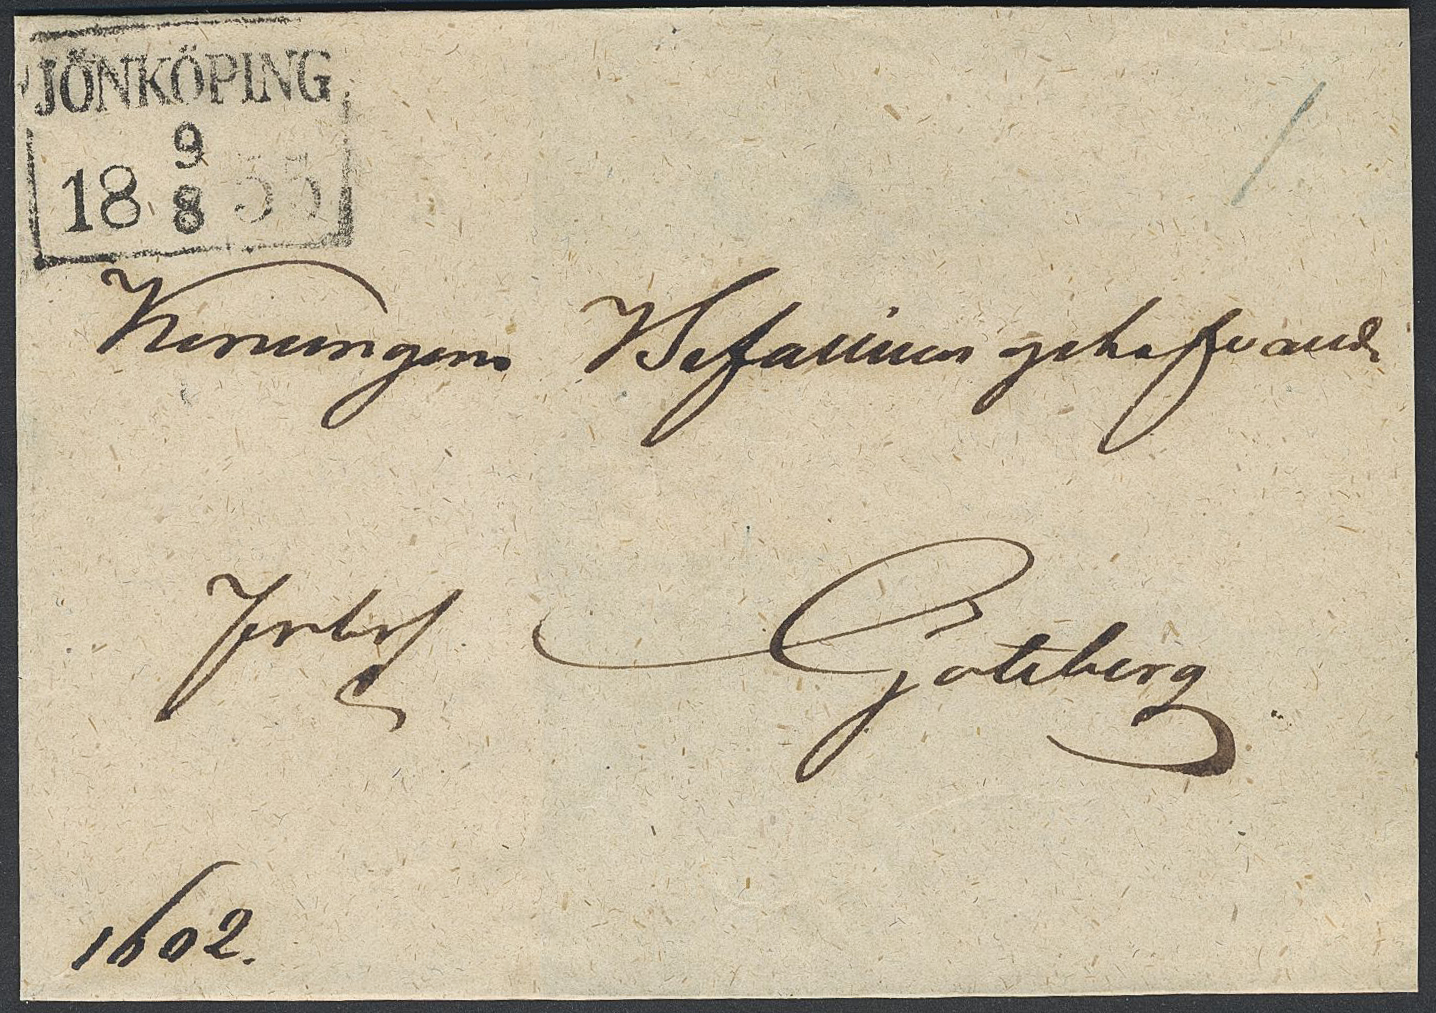 JÖNKÖPING
9
18 55
8
Konungens Befallningshafvande
Götheborg
1602.